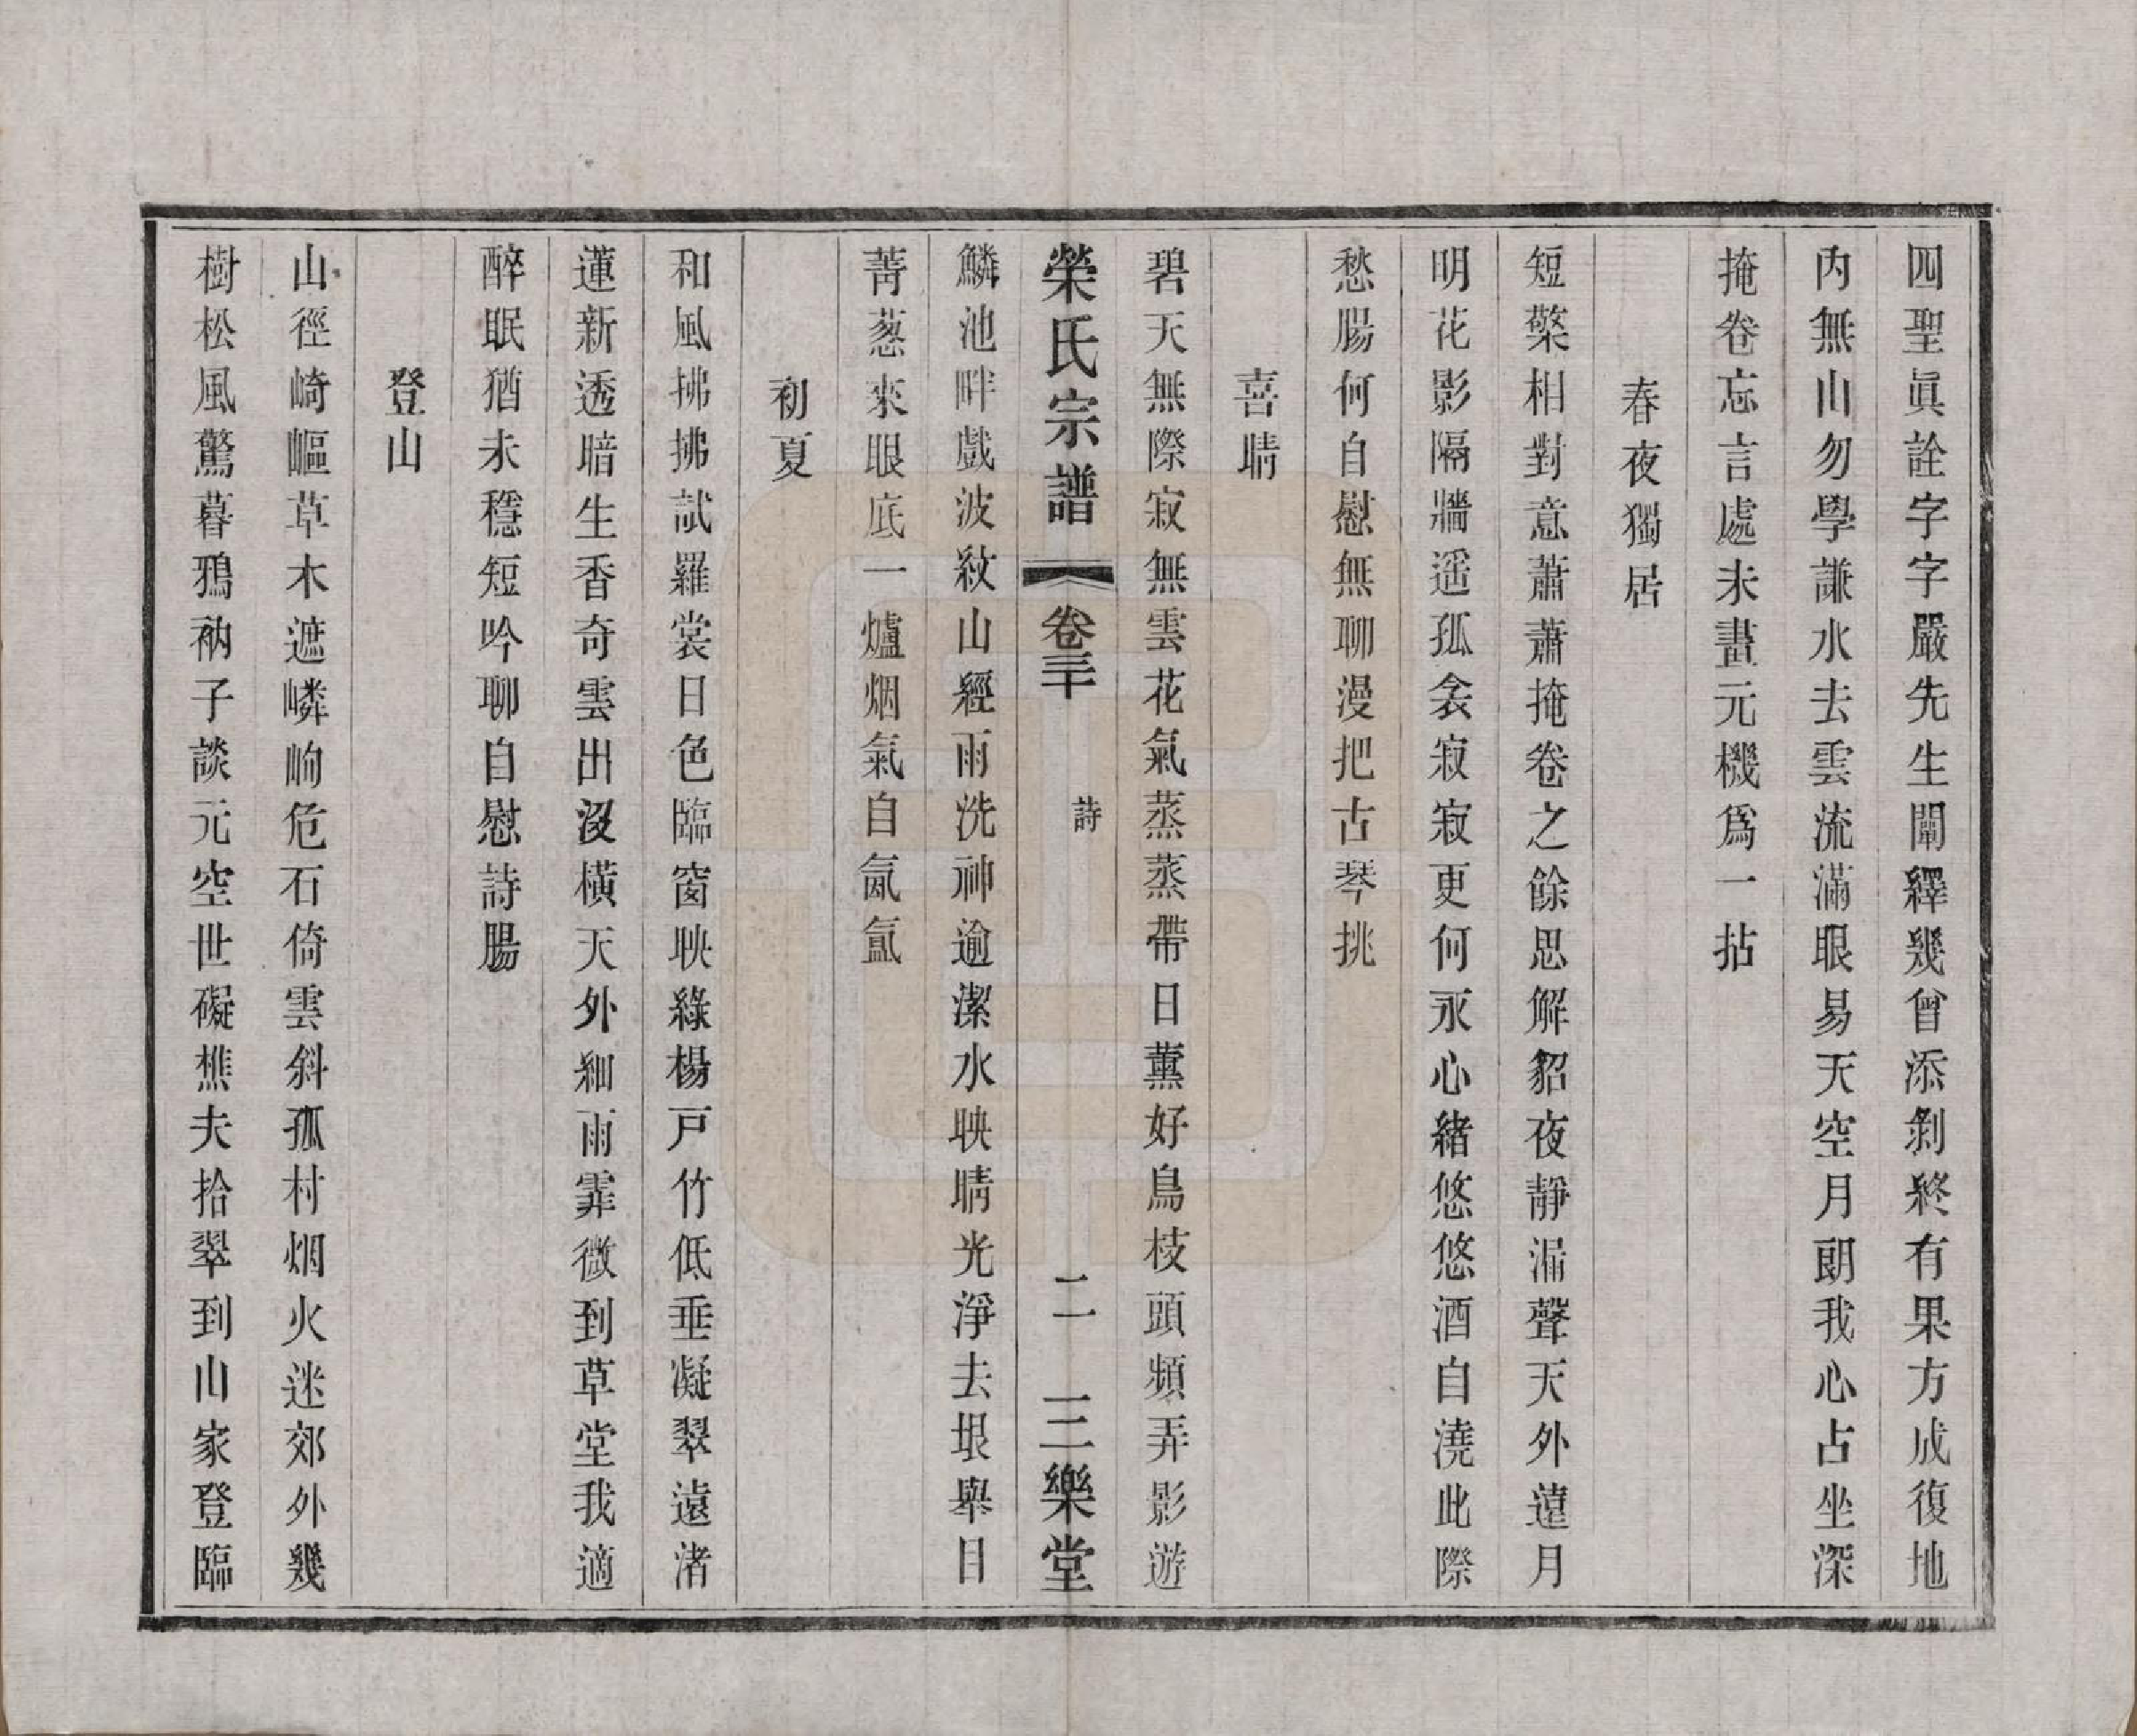 四聖眞詮字字嚴先生闡繹幾曾添剝終有果方成復地
內無山勿學謙水去雲流滿眼易天空月朗我心占坐深
掩卷忘言處未畫元機爲一拈
春夜獨居
短檠相對意蕭蕭掩卷之餘思解貂夜靜漏聲天外遠月
明花影隔牆遥孤衾寂寂更何永心緒悠悠酒自澆此際
愁腸何自慰無聊漫把古琴挑
喜晴
碧天無際寂無雲花氣蒸蒸帶日薰好鳥枝頭頻弄影遊
榮氏宗譜
卷三十
詩
二
三樂堂
鱗池畔戲波紋山經雨洗神逾潔水映晴光淨去垠舉目
菁葱來眼底一爐烟氣自氤氳
初夏
和風拂拂試羅裳日色臨窗映綠楊戸竹低垂凝翠遠渚
蓮新透暗生香奇雲出沒橫天外細雨霏微到草堂我適
醉眠猶未穩短吟聊自慰詩腸
登山
山徑崎嶇草木遮嶙峋危石倚雲斜孤村烟火迷郊外幾
樹松風驚暮鴉衲子談元空世礙樵夫拾翠到山家登臨